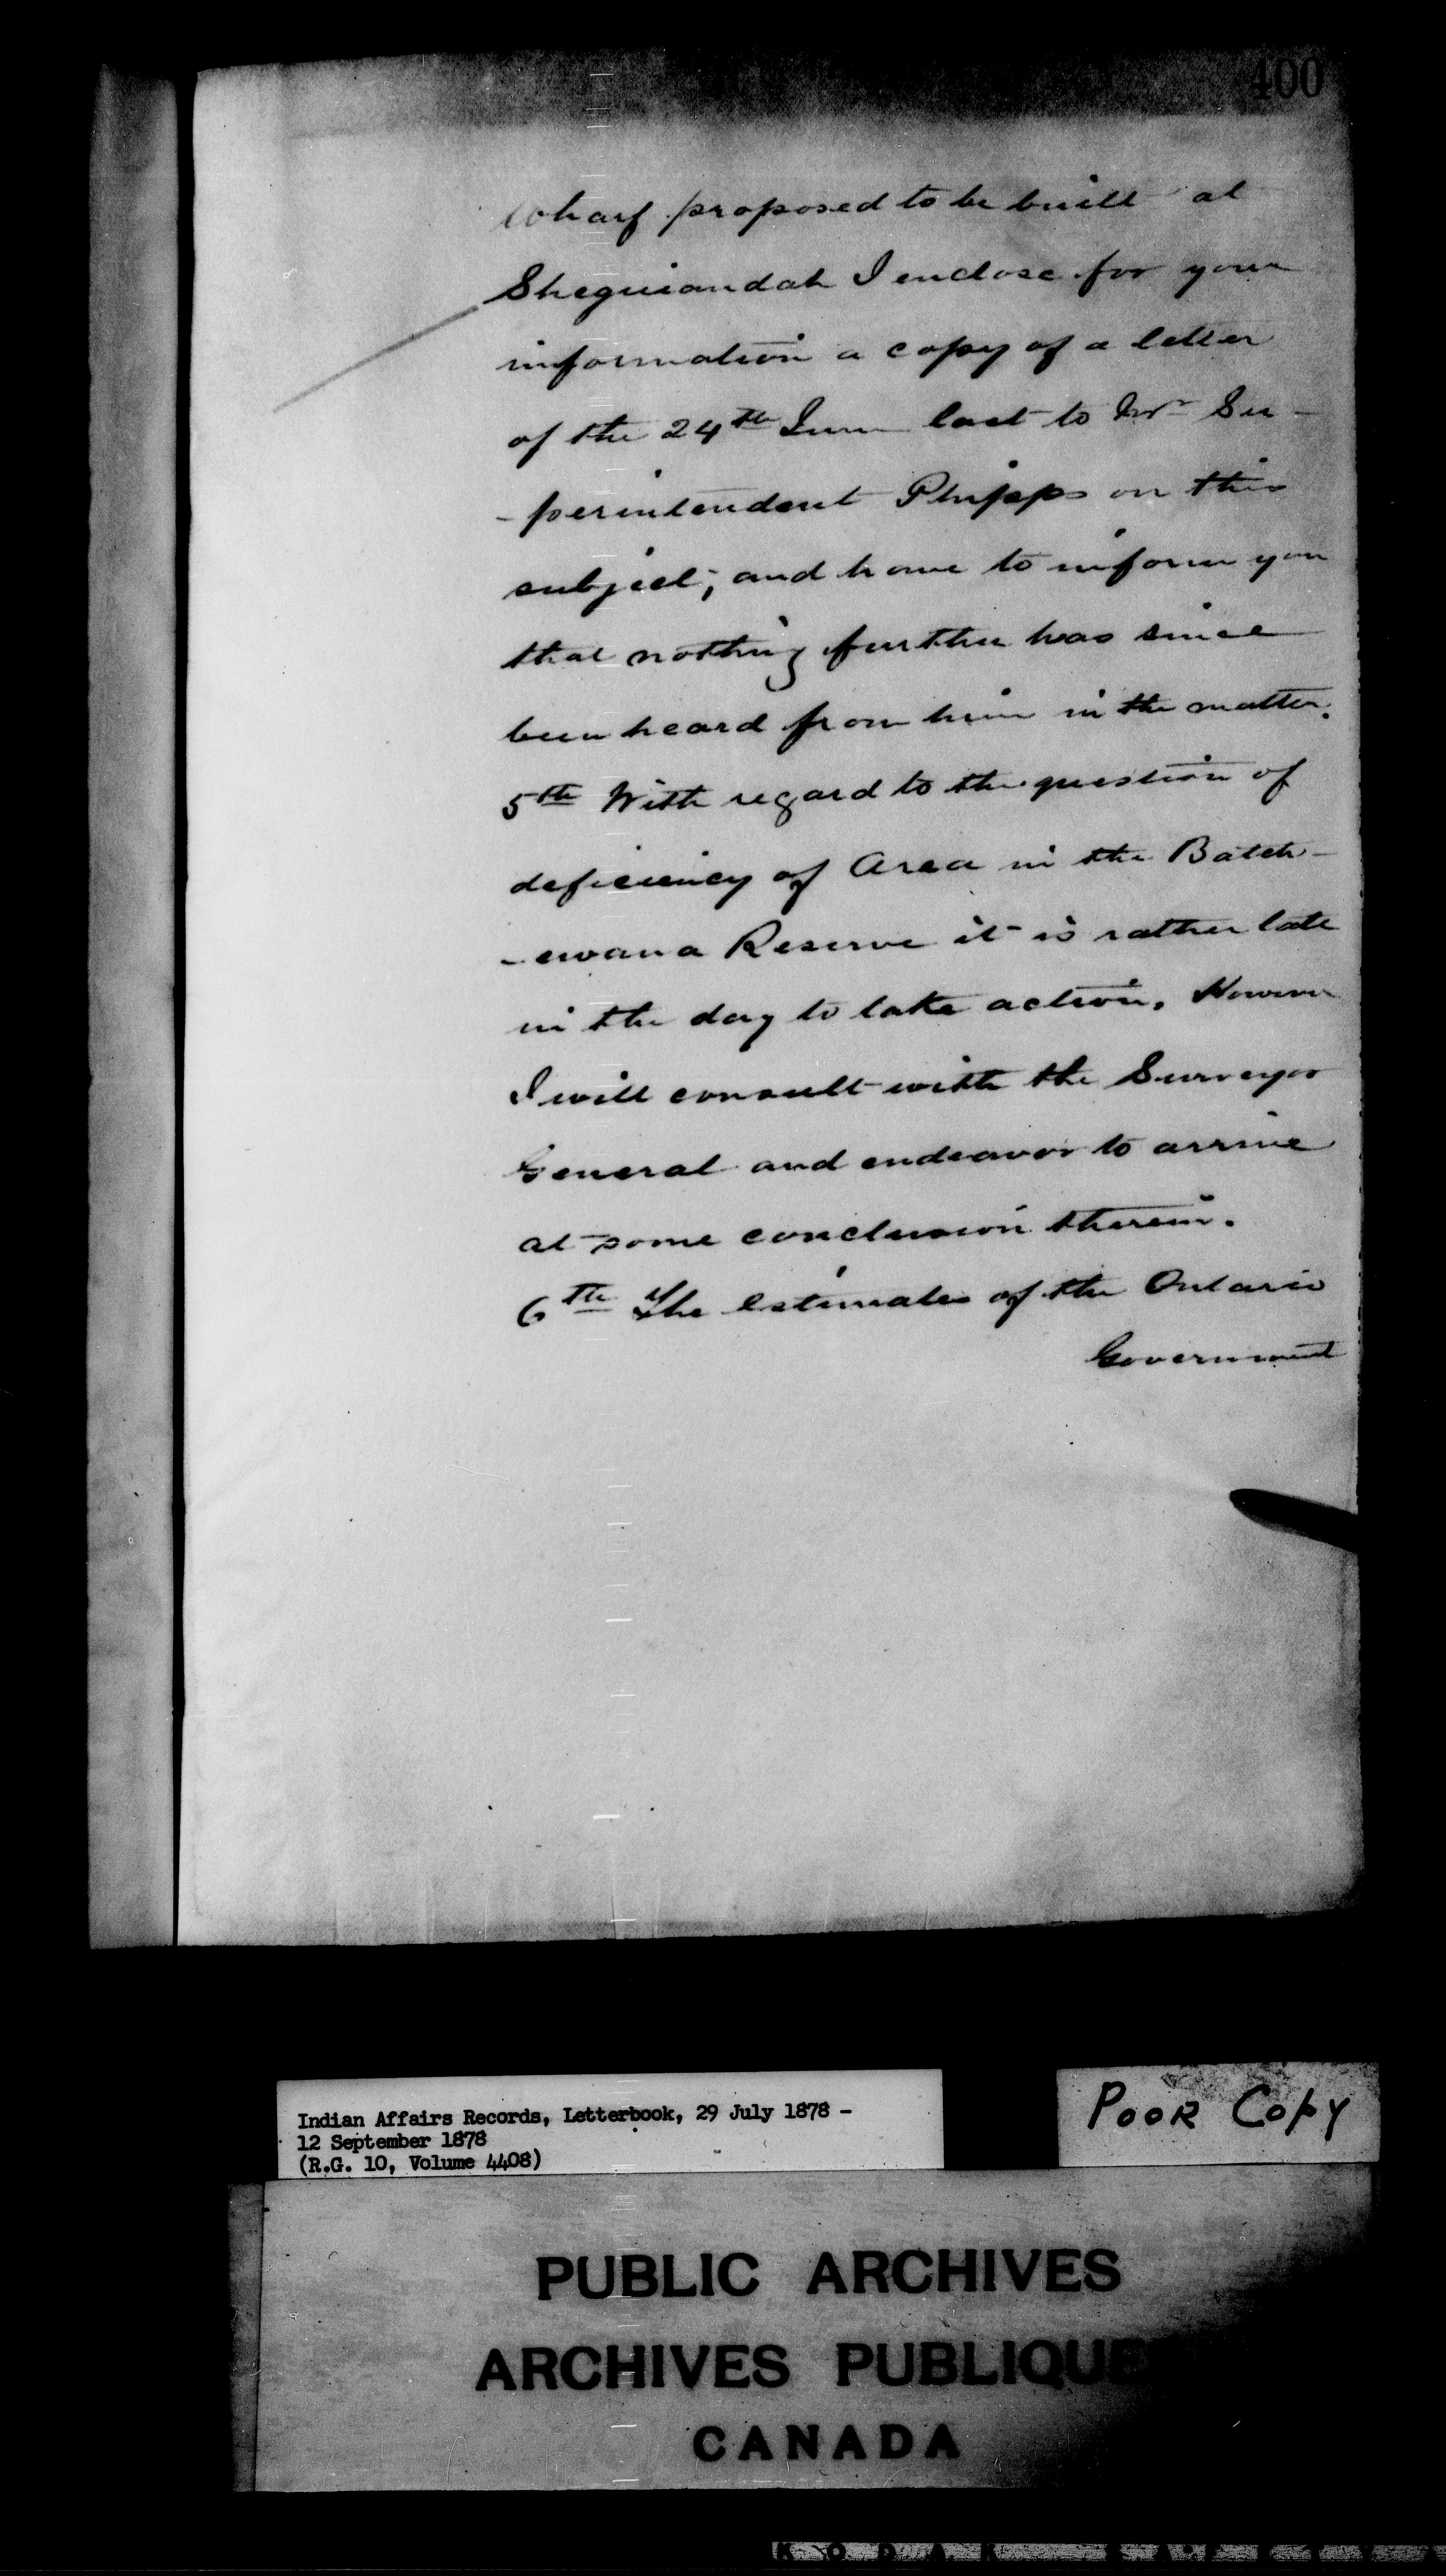 400
Wharf proposed to be built at
Sheguiandah I enclose for your
information a copy of a letter
of the 24th June last to Mr Su-
-perintendent Phipps on this
subject; and have to inform you
that nothing further has since
been heard from him in the matter.
5th With regard to the question of
deficiency of Area in the Batch-
-ewana Reserve it is rather late
in the day to take action. However
I will consult with the Surveyor
General and endeavor to arrive
at some conclusion therein.
6th The Estimates of the Ontario
Government
Indian Affairs Records, Letterbook, 29 July 1878 -
12 September 1878
(R.G. 10, Volume 4408)
POOR COPY
PUBLIC ARCHIVES
ARCHIVES PUBLIQUE
CANADA